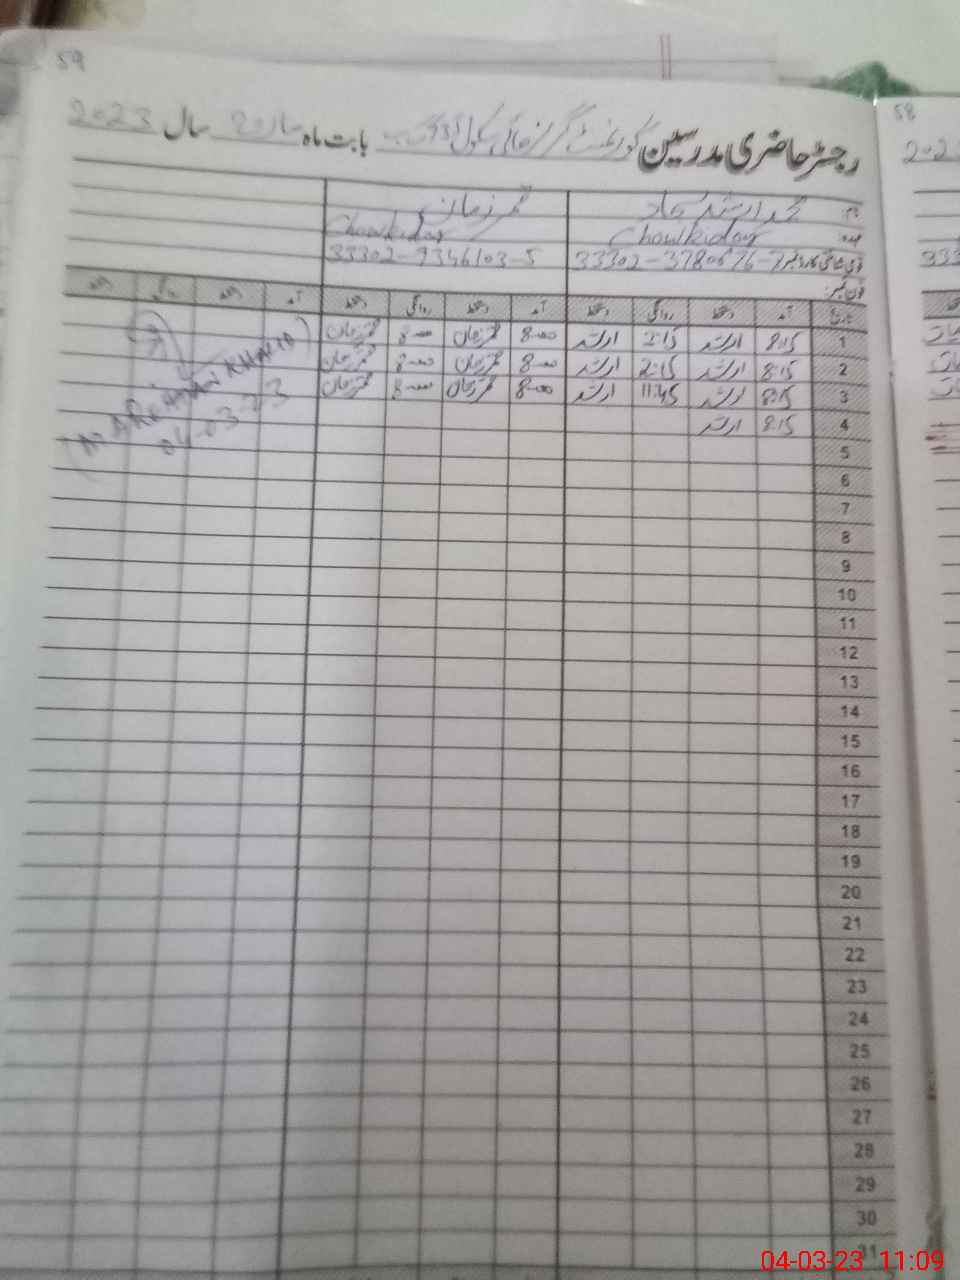 59
رجسٹر حاضری مدرسین گورنمنٹ گرلز ہائی سکول بابت ماہ مارچ سال 2023
58
نام محمد ارشد قمر زمان
عہدہ Chowkidar Chowkidar
قومی شناختی کارڈ نمبر 33302-9346103-5
فون نمبر:
تاریخ آمد دستخط روانگی دستخط آمد دستخط روانگی دستخط آمد دستخط روانگی دستخط
1 8:15 ارشد 2:15 ارشد 8-00 قمر زمان 8-00 قمر زمان
2 8:15 ارشد 2:15 ارشد 8-00 قمر زمان 8-00 قمر زمان
3 8:15 ارشد 11:45 ارشد 8-00 قمر زمان 8-00 قمر زمان
4 8:15 ارشد
KHALID
04-03-23
5
6
7
8
9
10
11
12
13
14
15
16
17
18
19
20
21
22
23
24
25
26
27
28
29
30
31
04-03-23 11:09